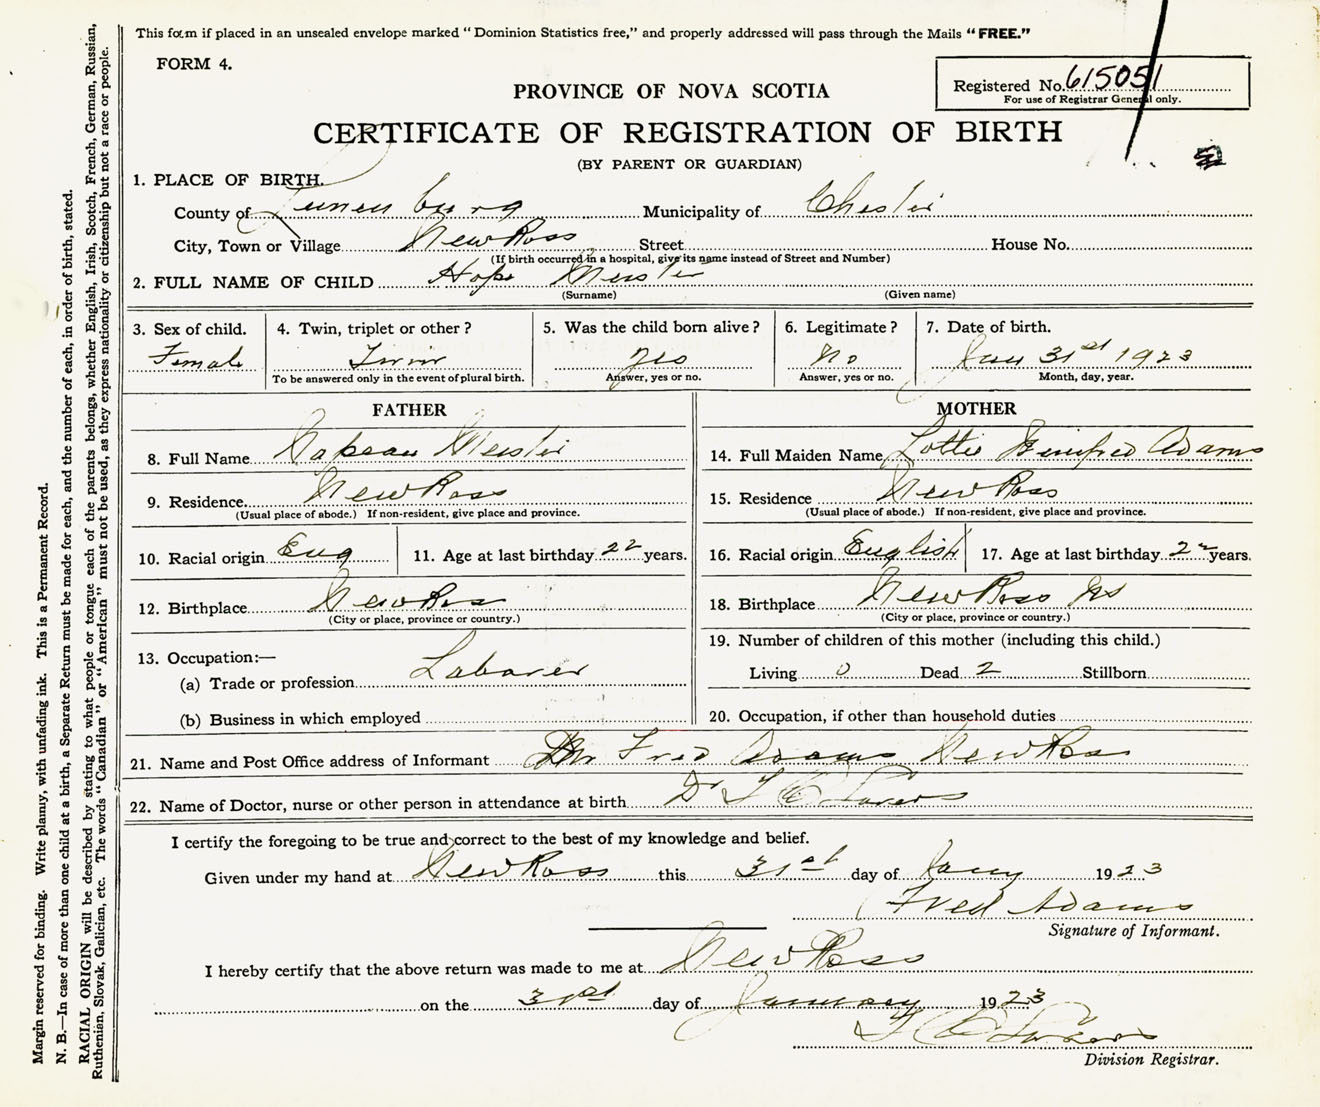 This form if placed in an unsealed envelope marked “Dominion Statistics free,” and properly addressed will pass through the Mails “FREE.”
FORM 4.
Registered No. 615051
For use of Registrar General only.
PROVINCE OF NOVA SCOTIA
CERTIFICATE OF REGISTRATION OF BIRTH
(BY PARENT OR GUARDIAN)
1. PLACE OF BIRTH.
County of Lunenburg Municipality of Chester
City, Town or Village New Ross Street House No.
(If birth occurred in a hospital, give its name instead of Street and Number)
2. FULL NAME OF CHILD Hope Meister
(Surname) (Given name)
3. Sex of child. 4. Twin, triplet or other? 5. Was the child born alive? 6. Legitimate? 7. Date of birth.
Female Twin Yes No Jany 31st 1923
To be answered only in the event of plural birth. Answer, yes or no. Answer, yes or no. Month, day, year.
FATHER MOTHER
8. Full Name Meister 14. Full Maiden Name Lottie Winifred Adams
9. Residence New Ross 15. Residence New Ross
(Usual place of abode.) If non-resident, give place and province. (Usual place of abode.) If non-resident, give place and province.
10. Racial origin Eng 11. Age at last birthday 22 years. 16. Racial origin English 17. Age at last birthday 22 years.
12. Birthplace New Ross 18. Birthplace New Ross NS
(City or place, province or country.) (City or place, province or country.)
13. Occupation:— 19. Number of children of this mother (including this child.)
(a) Trade or profession Laborer Living 0 Dead 2 Stillborn
(b) Business in which employed 20. Occupation, if other than household duties
21. Name and Post Office address of Informant Mr Fred Adams New Ross
22. Name of Doctor, nurse or other person in attendance at birth Dr
I certify the foregoing to be true and correct to the best of my knowledge and belief.
Given under my hand at New Ross this 31st day of Jany 1923
Fred Adams
Signature of Informant.
I hereby certify that the above return was made to me at New Ross
on the 31st day of January 1923
Division Registrar.
Margin reserved for binding. Write plainly, with unfading ink. This is a Permanent Record.
N. B.—In case of more than one child at a birth, a Separate Return must be made for each, and the number of each, in order of birth, stated.
RACIAL ORIGIN will be described by stating to what people or tongue each of the parents belongs, whether English, Irish, Scotch, French, German, Russian,
Ruthenian, Slovak, Galician, etc. The words “Canadian” or “American” must not be used, as they express nationality or citizenship but not a race or people.